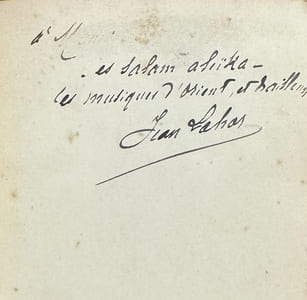 à
- es salam aleïka -
les musiques d'Orient, et d'ailleurs
Jean Lahor